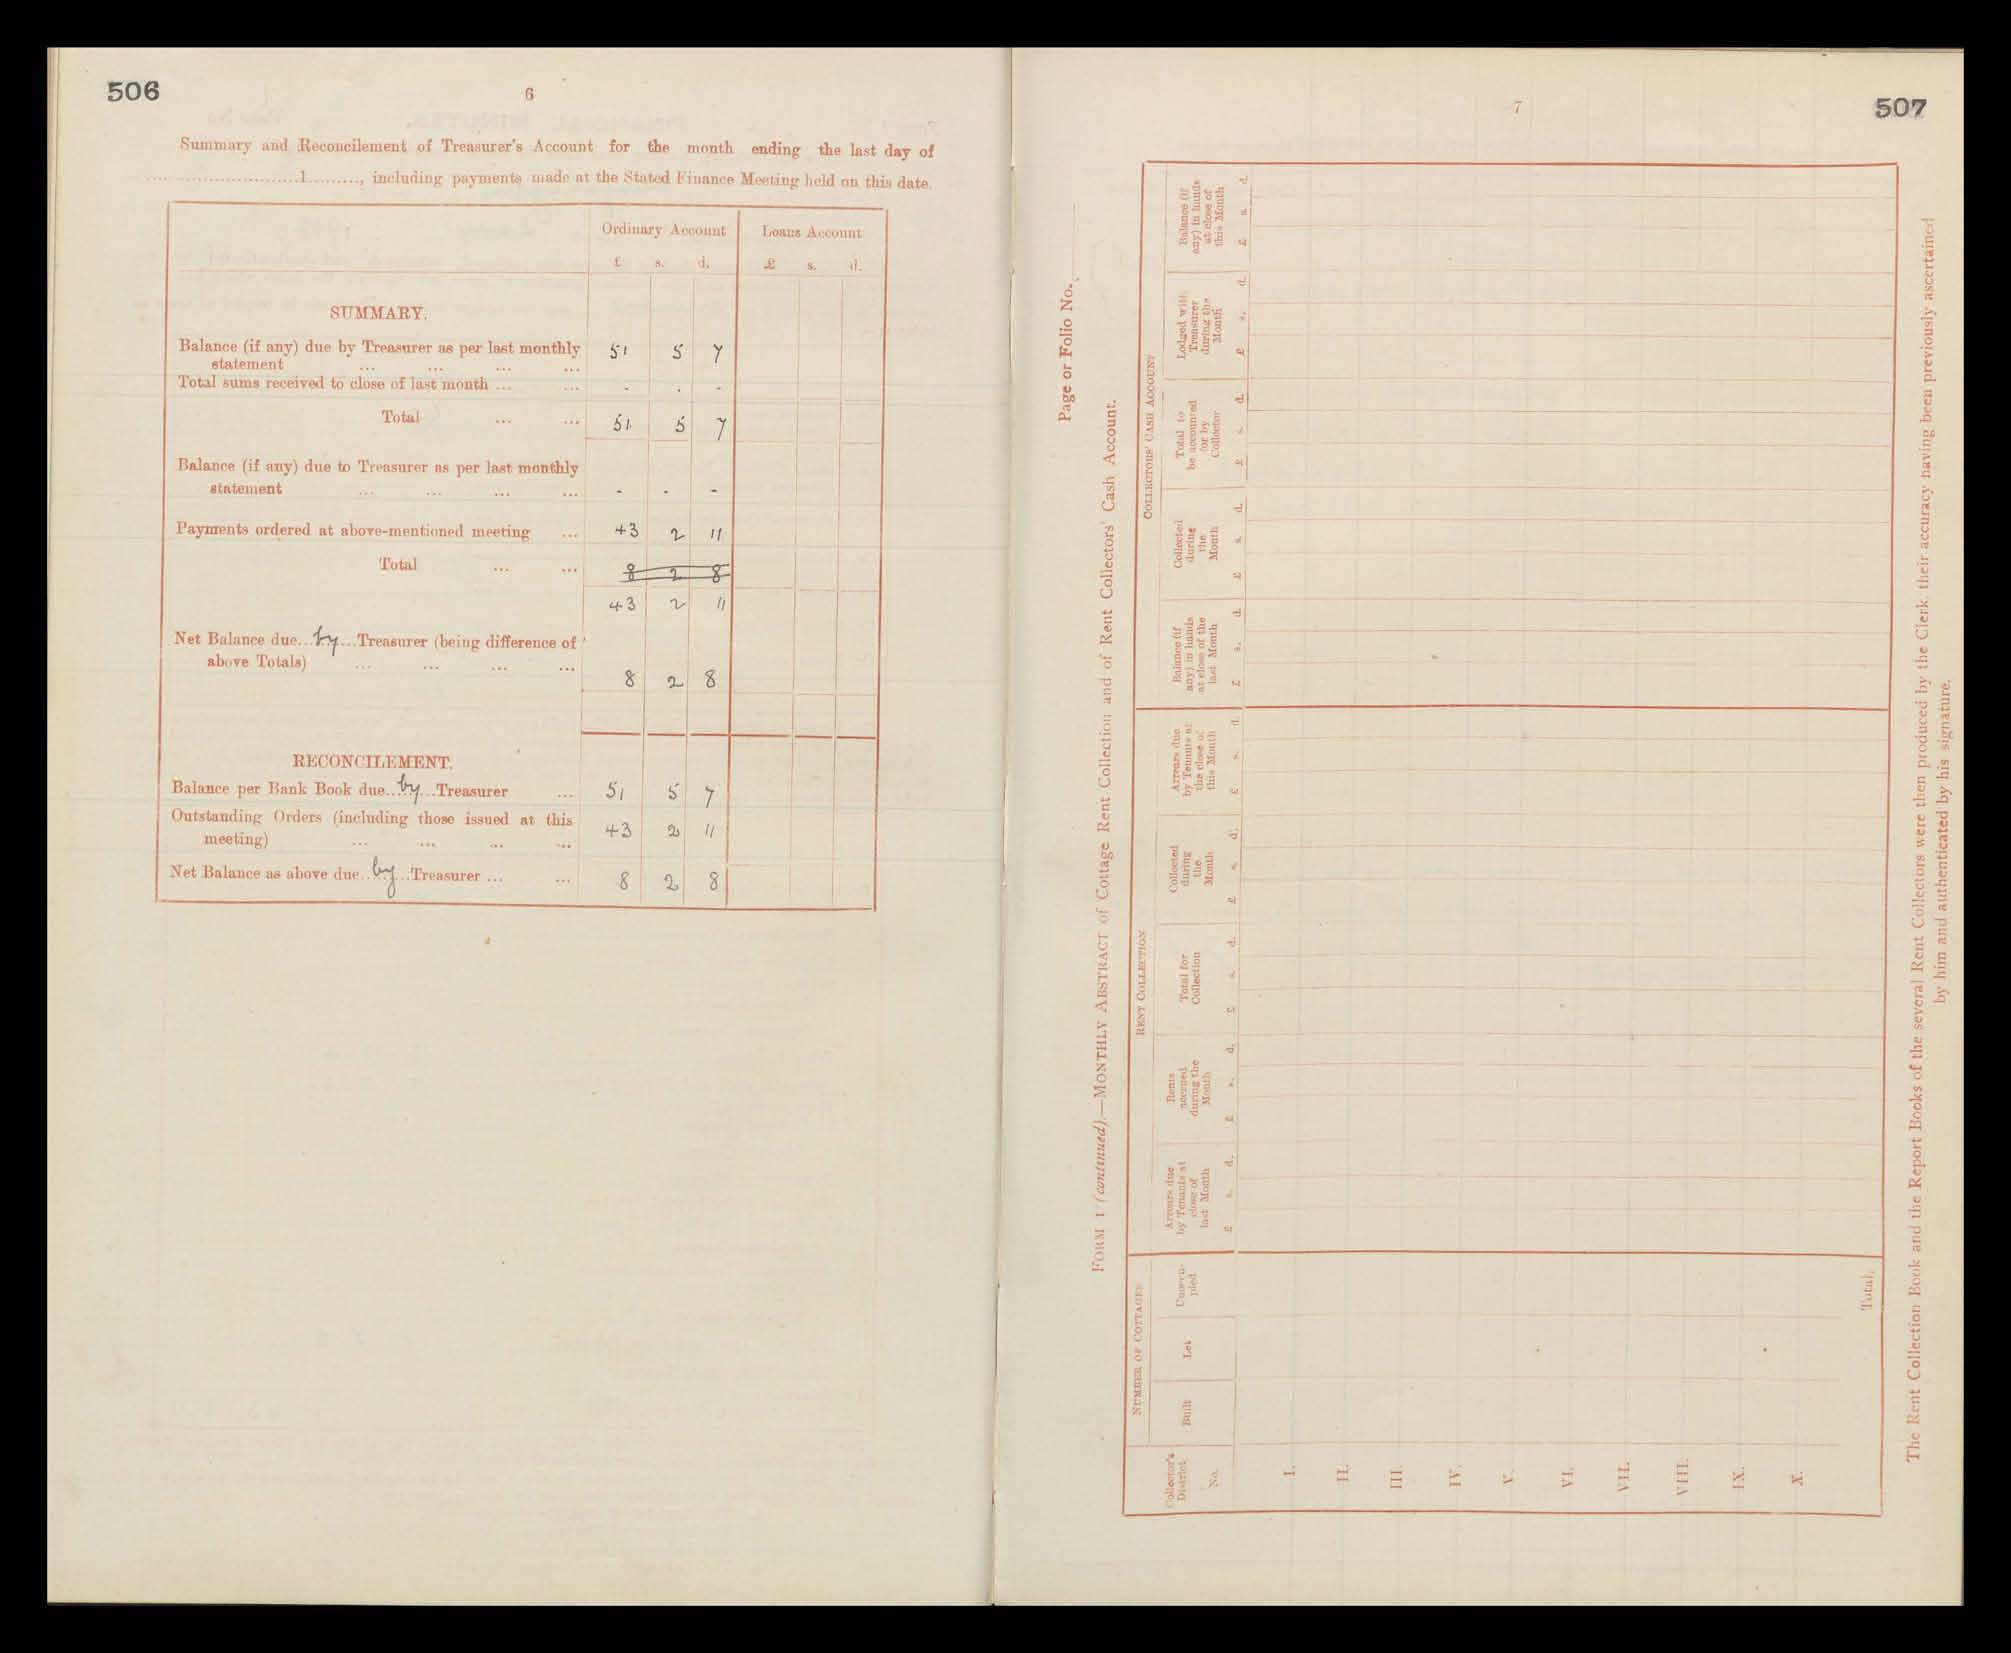 506
6
Summary and Reconcilement of Treasurer's Account for the month ending the last day of
............................1........., including payments made at the Stated Finance Meeting held on this date.
Ordinary Account Loans Account
£ s. d. £ s. d.
SUMMARY.
Balance (if any) due by Treasurer as per last monthly
statement ... ... ... ... 51 5 7
Total sums received to close of last month ... ... - . -
Total ... ... 51 5 7
Balance (if any) due to Treasurer as per last monthly
statement ... ... ... ... - . -
Payments ordered at above-mentioned meeting ... 43 2 11
Total ... ... 8 2 8
43 2 11
Net Balance due...by...Treasurer (being difference of
above Totals) ... ... ... ...
8 2 8
RECONCILEMENT.
Balance per Bank Book due...by...Treasurer ... 51 5 7
Outstanding Orders (including those issued at this
meeting) ... ... ... ... 43 2 11
Net Balance as above due...by...Treasurer ... ... 8 2 8
7
507
Page or Folio No.
FORM 1 (continued).—MONTHLY ABSTRACT of Cottage Rent Collection and of Rent Collectors' Cash Account.
NUMBER OF COTTAGES
RENT COLLECTION
COLLECTORS' CASH ACCOUNT
Collector's
District
No.
Built
Let
Unoccu-
pied
Arrears due
by Tenants at
close of
last Month
£ s. d.
Rents
accrued
during the
Month
£ s. d.
Total for
Collection
£ s. d.
Collected
during
the
Month
£ s. d.
Arrears due
by Tenants at
the close of
this Month
£ s. d.
Balance (if
any) in hands
at close of the
last Month
£ s. d.
Collected
during
the
Month
£ s. d.
Total to
be accounted
for by
Collector
£ s. d.
Lodged with
Treasurer
during the
Month
£ s. d.
Balance (if
any) in hands
at close of
this Month
£ s. d.
I.
II.
III.
IV.
V.
VI.
VII.
VIII.
IX.
X.
Total,
The Rent Collection Book and the Report Books of the several Rent Collectors were then produced by the Clerk, their accuracy having been previously ascertained
by him and authenticated by his signature.